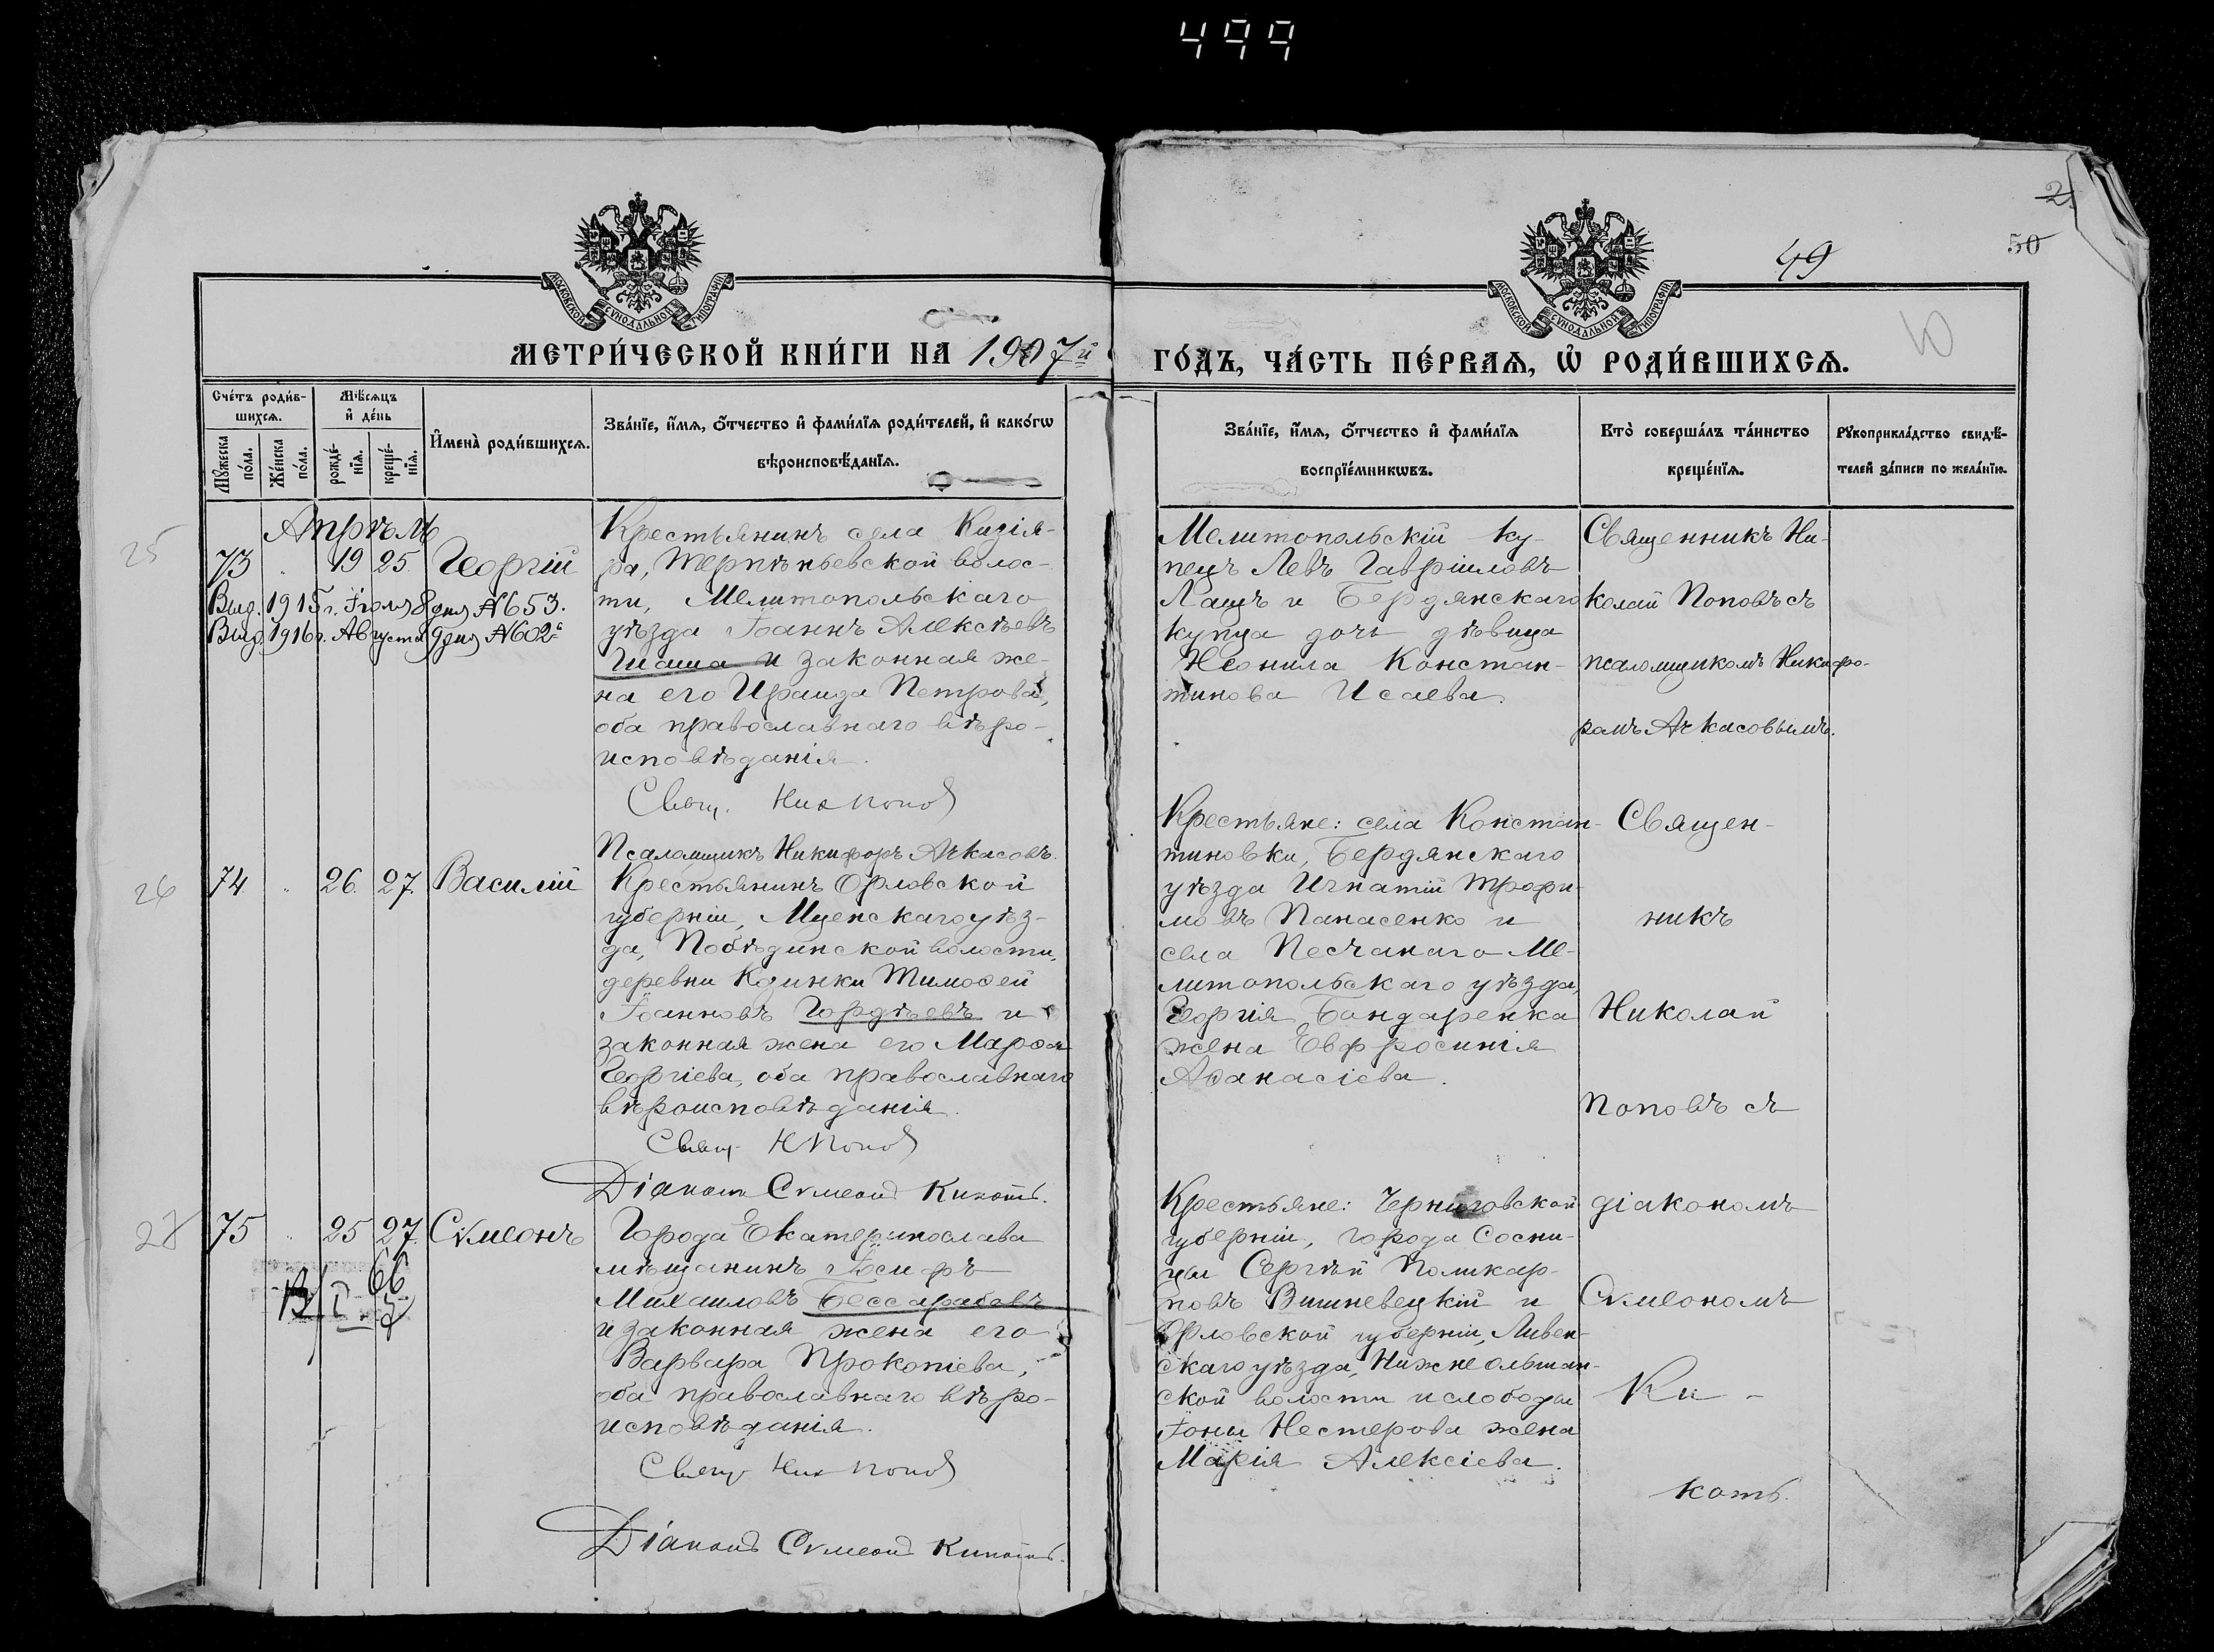 499
2
50
49
МОСКОВСКОЙ СѴНОДАЛЬНОЙ ТИПОГРАФІИ
МОСКОВСКОЙ СѴНОДАЛЬНОЙ ТИПОГРАФІИ
МЕТРИ́ЧЕСКОЙ КНИ́ГИ НА 1907й ГО́ДЪ, ЧА́СТЬ ПЕ́РВАѦ, Ѡ҆ РОДИ́ВШИХСѦ.
Сче́тъ роди́в-
шихсѧ.
Мꙋ́жеска по́ла.
Же́нска по́ла.
Мѣ́сѧцъ
и҆ де́нь
рожде́-
нїѧ.
креще́-
нїѧ.
И҆мена̀ роди́вшихсѧ.
Зва́нїе, и҆́мѧ, ѻ҆́тчество и҆ фами́лїѧ роди́телей, и҆ како́гѡ
вѣроисповѣ́данїѧ.
Зва́нїе, и҆́мѧ, ѻ҆́тчество и҆ фами́лїѧ
воспрїе́мникѡвъ.
Кто̀ соверша́лъ та́инство
креще́нїѧ.
Рꙋкоприкла́дство свидѣ́-
телей за́писи по жела́нїю.
Апрѣль
25
73 " 19 25 Георгій
Выд. 1915 г. Іюля 8 дня №653.
Выд. 1916 г. Августа 9 дня №602
Крестьянинъ села Кизія-
ра, Терпѣньевской волос-
ти, Мелитопольскаго
уѣзда Іоаннъ Алексѣевъ
Гиама и законная же-
на его Ираида Петрова,
оба православнаго вѣро-
исповѣданія.
Свящ. Ник Попов
Псаломщикъ Никифоръ Ачкасовъ.
Мелитопольскій ку-
пецъ Левъ Гавріиловъ
Лащъ и Бердянскаго
купца дочь дѣвица
Неонила Констан-
тинова Исаева.
Священникъ Ни-
колай Поповъ съ
псаломщикомъ Никифо-
ромъ Ачкасовымъ.
26
74 " 26 27 Василій
Крестьянинъ Орловской
губерніи, Мценскаго уѣз-
да, Побѣдинской волости,
деревни Кдинки Тимоѳей
Іоанновъ Гордѣевъ и
законная жена его Марѳа
Георгіева, оба православнаго
вѣроисповѣданія.
Свящ. Н Попов
Діаконъ Сѵмеонъ Кикоть.
Крестьяне: села Констан-
тиновки, Бердянскаго
уѣзда Игнатій Трофи-
мовъ Панасенко и
села Песчанаго Ме-
литопольскаго уѣзда,
Георгія Бондаренка
жена Евфросинія
Аѳанасіева.
Священ-
никъ
Николай
Поповъ съ
75 " 25 27 Сѵмеонъ
Города Екатеринослава
мѣщанинъ Іосифъ
Михаиловъ Бессарабовъ
и законная жена его
Варвара Прокопіева,
оба православнаго вѣро-
исповѣданія.
Свящ. Ник Попов
Діаконъ Сѵмеонъ Кикоть.
Крестьяне: Черниговской
губерніи, города Сосни-
цы Сергѣй Поликар-
повъ Вишневецкій и
Орловской губерніи, Ливен-
скаго уѣзда, Нижнеольшан-
ской волости и слободы
Іоны Нестерова жена
Марія Алексіева.
діакономъ
Сѵмеономъ
Ки-
коть.